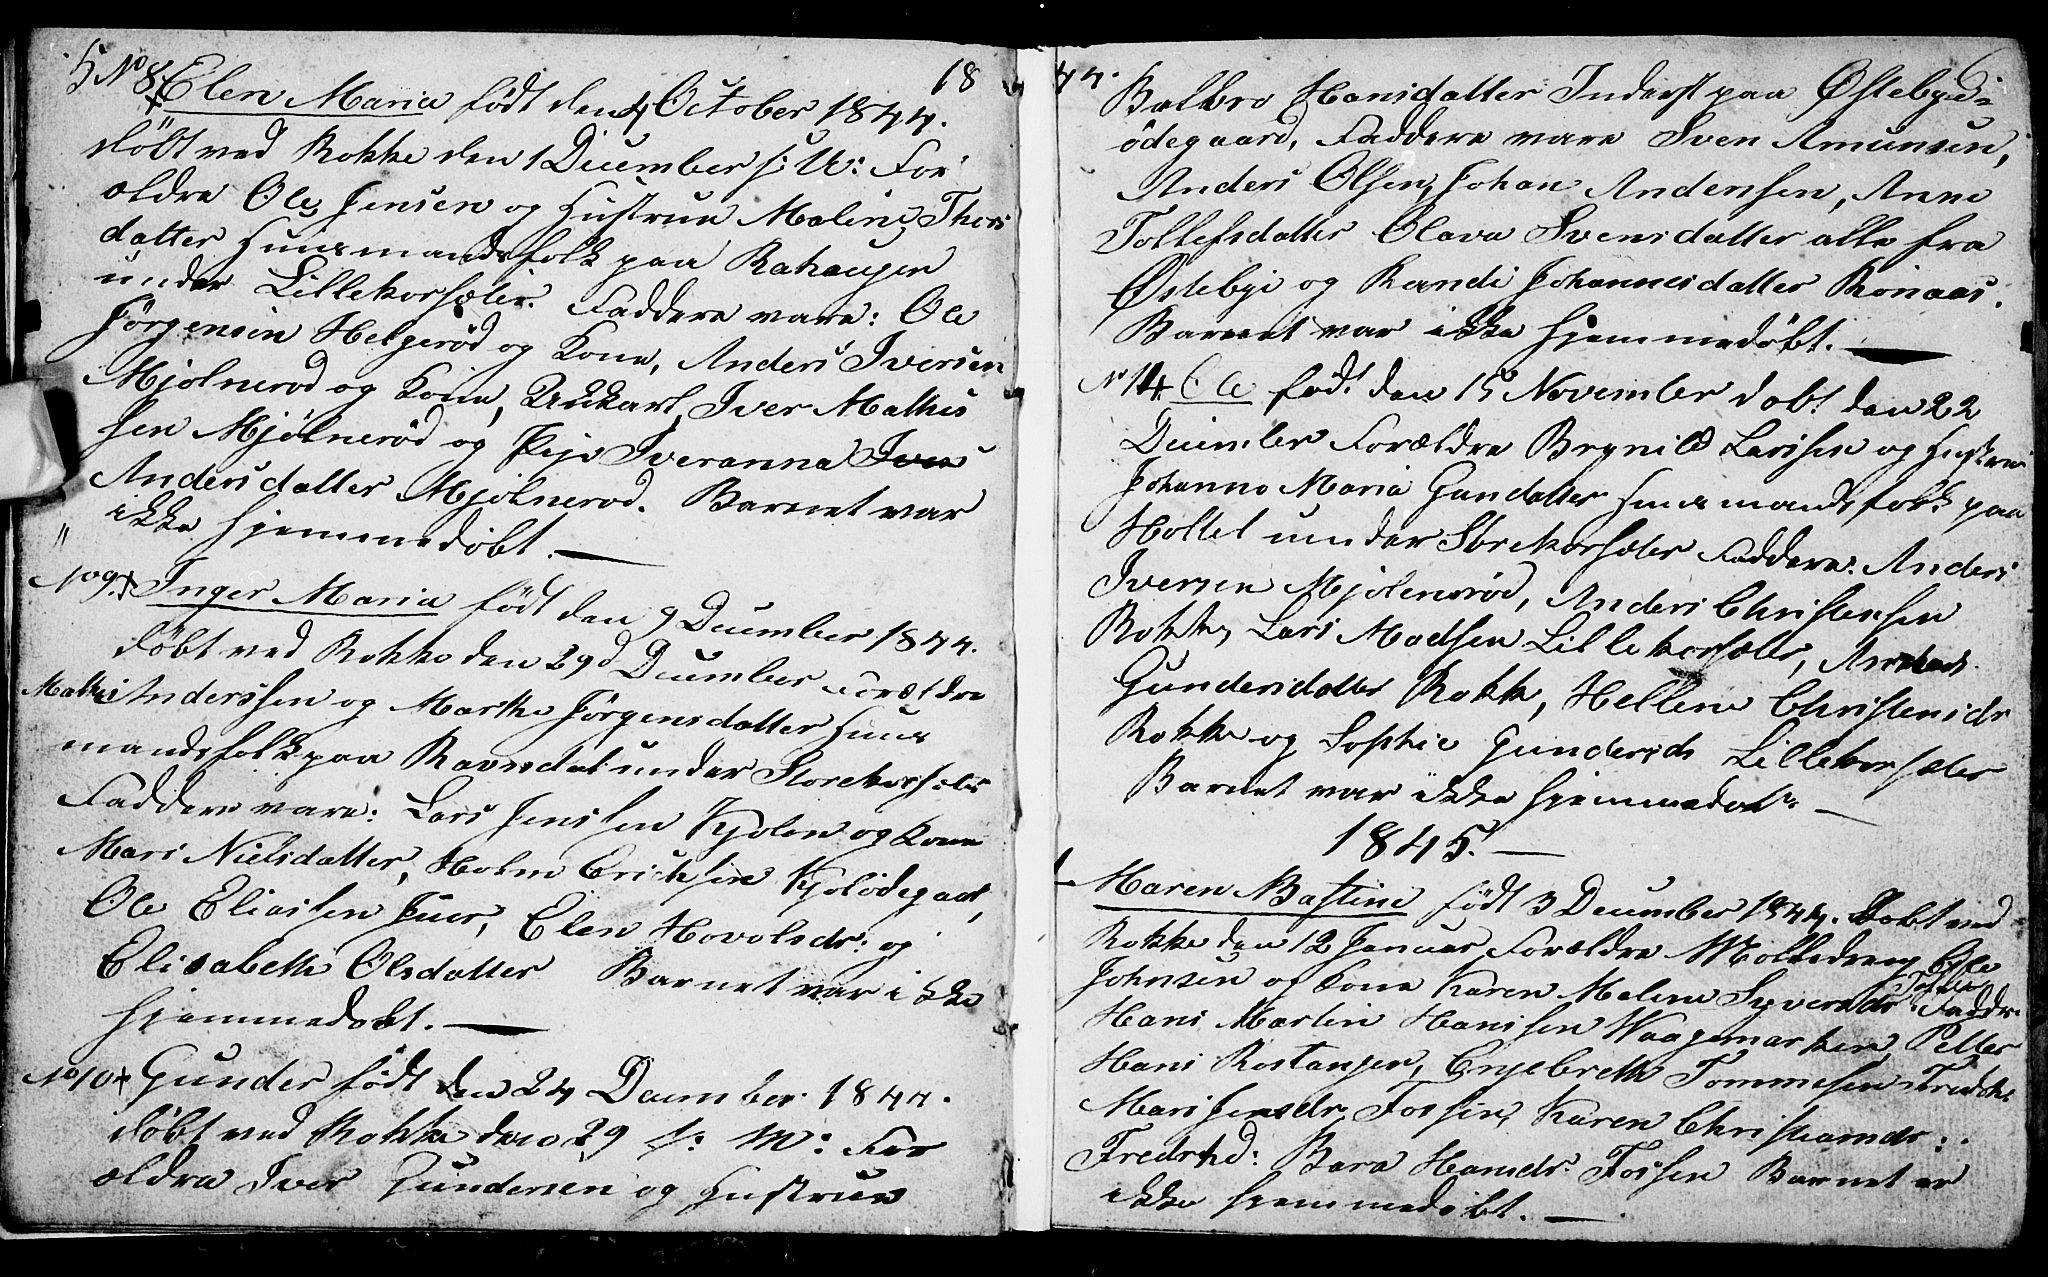 5 No 8 Elen Maria født den 4 October 1844. 18
döbt ved Rokke den 1 December s: A: For
ældre Ole Jensen og Hustrue Malene Thors
datter Huusmandsfolk paa Rahaugen
under Lillekorsæter. Faddere vare: Ole
Jörgensen Helgeröd og Kone, Anders Iversen
Mjölneröd og Kone, Iver Mathis
sen Mjölneröd og Pige Iveranna Ivers
Andersdatter Mjölneröd. Barnet var
ikke hjemmedöbt.
No 9. Inger Maria födt den 9 December 1844.
döbt ved Rokke den 29d December Forældre
Mathis Anderssen og Marthe Jörgensdatter Huus
mandsfolk paa Ravndal under Storekorsæter
Faddere vare: Lars Jenssen Kjölen og Kone
Mari Nielsdatter, Holm Ericksen Kjolödegaar,
Ole Eliassen Juer, Elen Hovolsdr: og
Elisabeth Olsdatter Barnet var ikke
hjemmedöbt.
No 10 Gunder födt den 24 December 1844.
döbt ved Rokke den 29 s: M: For
ældre Iver Gundersen og Hustrue
44. 6
Balbro Hansdatter Inderst paa Østebye
ödegaard, Faddere vare Sven Amunsen,
Anders Olsen, Johan Andersen, Anne
Tollefsdatter Olava Svensdatter alle fra
Østebye og Randi Johannesdatter Rönaas.
Barnet var ikke hjemmedöbt.
No 14 Ole föd. den 15 November döbt den 22
December Forældre Brynild Larssen og Hustrue
Johanne Maria Gundatter Huusmandsfolk paa
Holtet under Storekorsæter Faddere: Anders
Iversen Mjölneröd, Anders Christensen
Rokke, Lars Madsen Lillekorsæter,
Gundersdatter Rokke, Hellene Christensdr
Rokke og Sophie Gundersdr Lillekorsæter
Barnet var ikke hjemmedöbt.
1845.
1 Maren Bastine födt 3 December 1844. Döbt ved
Rokke den 12 Januar, Forældre Ole
Johnsen og Kone Karen Malene Syversdr Faddr:
Hans Martin Hanssen Waagemarken, Petter
Hans Rostangen, Engebreth Tommesen
Mari Jensdr Fossen, Karen Christiansdr:
Fredshd: Bara Hansdr Fossen Barnet er
ikke hjemmedöbt.